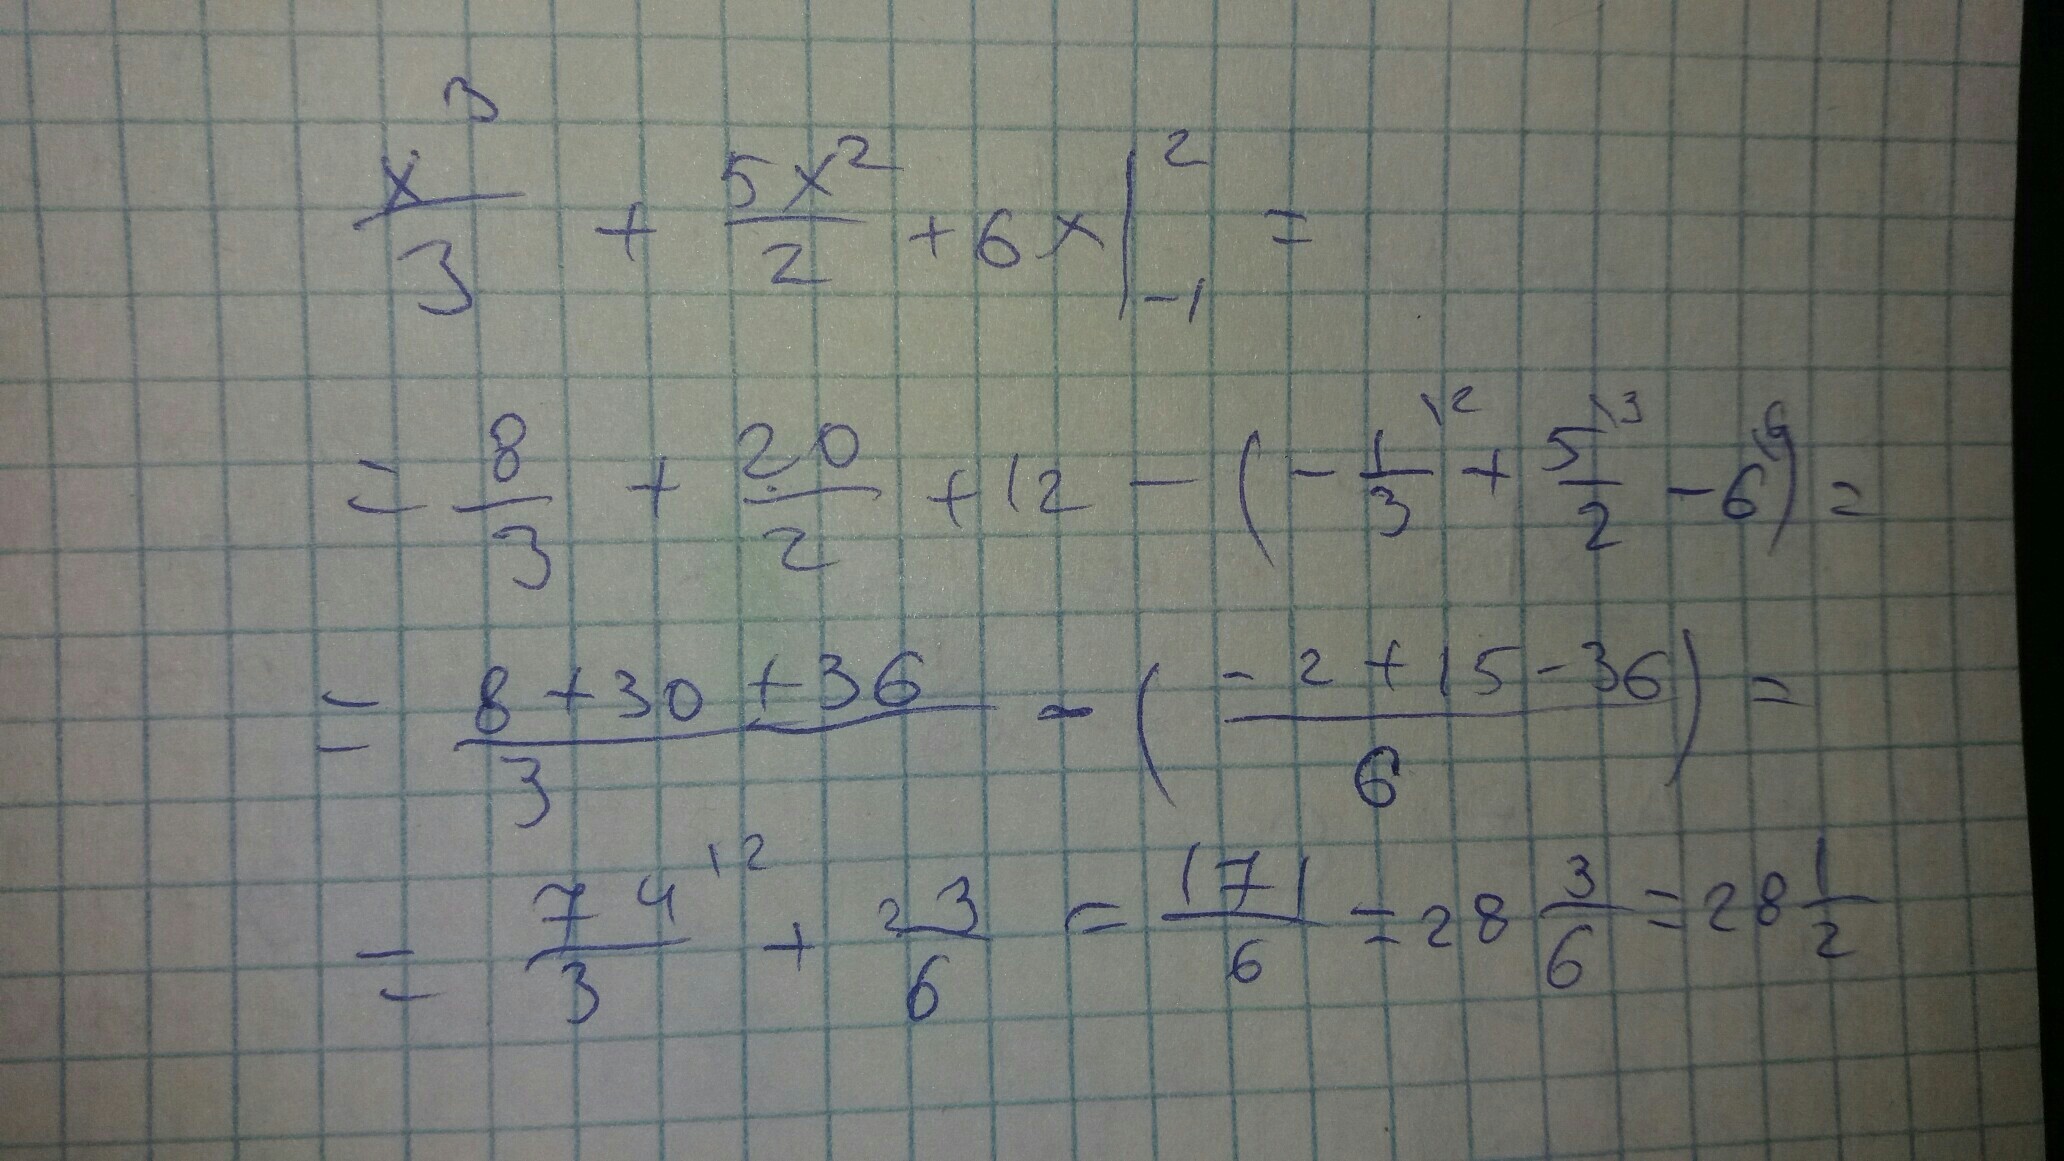 x³/3 + 5x²/2 + 6x |₋₁² =
= 8/3 + 20/2 + 12 - (-1/3 \2 + 5/2 \3 - 6 \6) =
= (8+30+36)/3 - ((-2+15-36)/6) =
= 74/3 \2 + 23/6 = 171/6 = 28 3/6 = 28 1/2